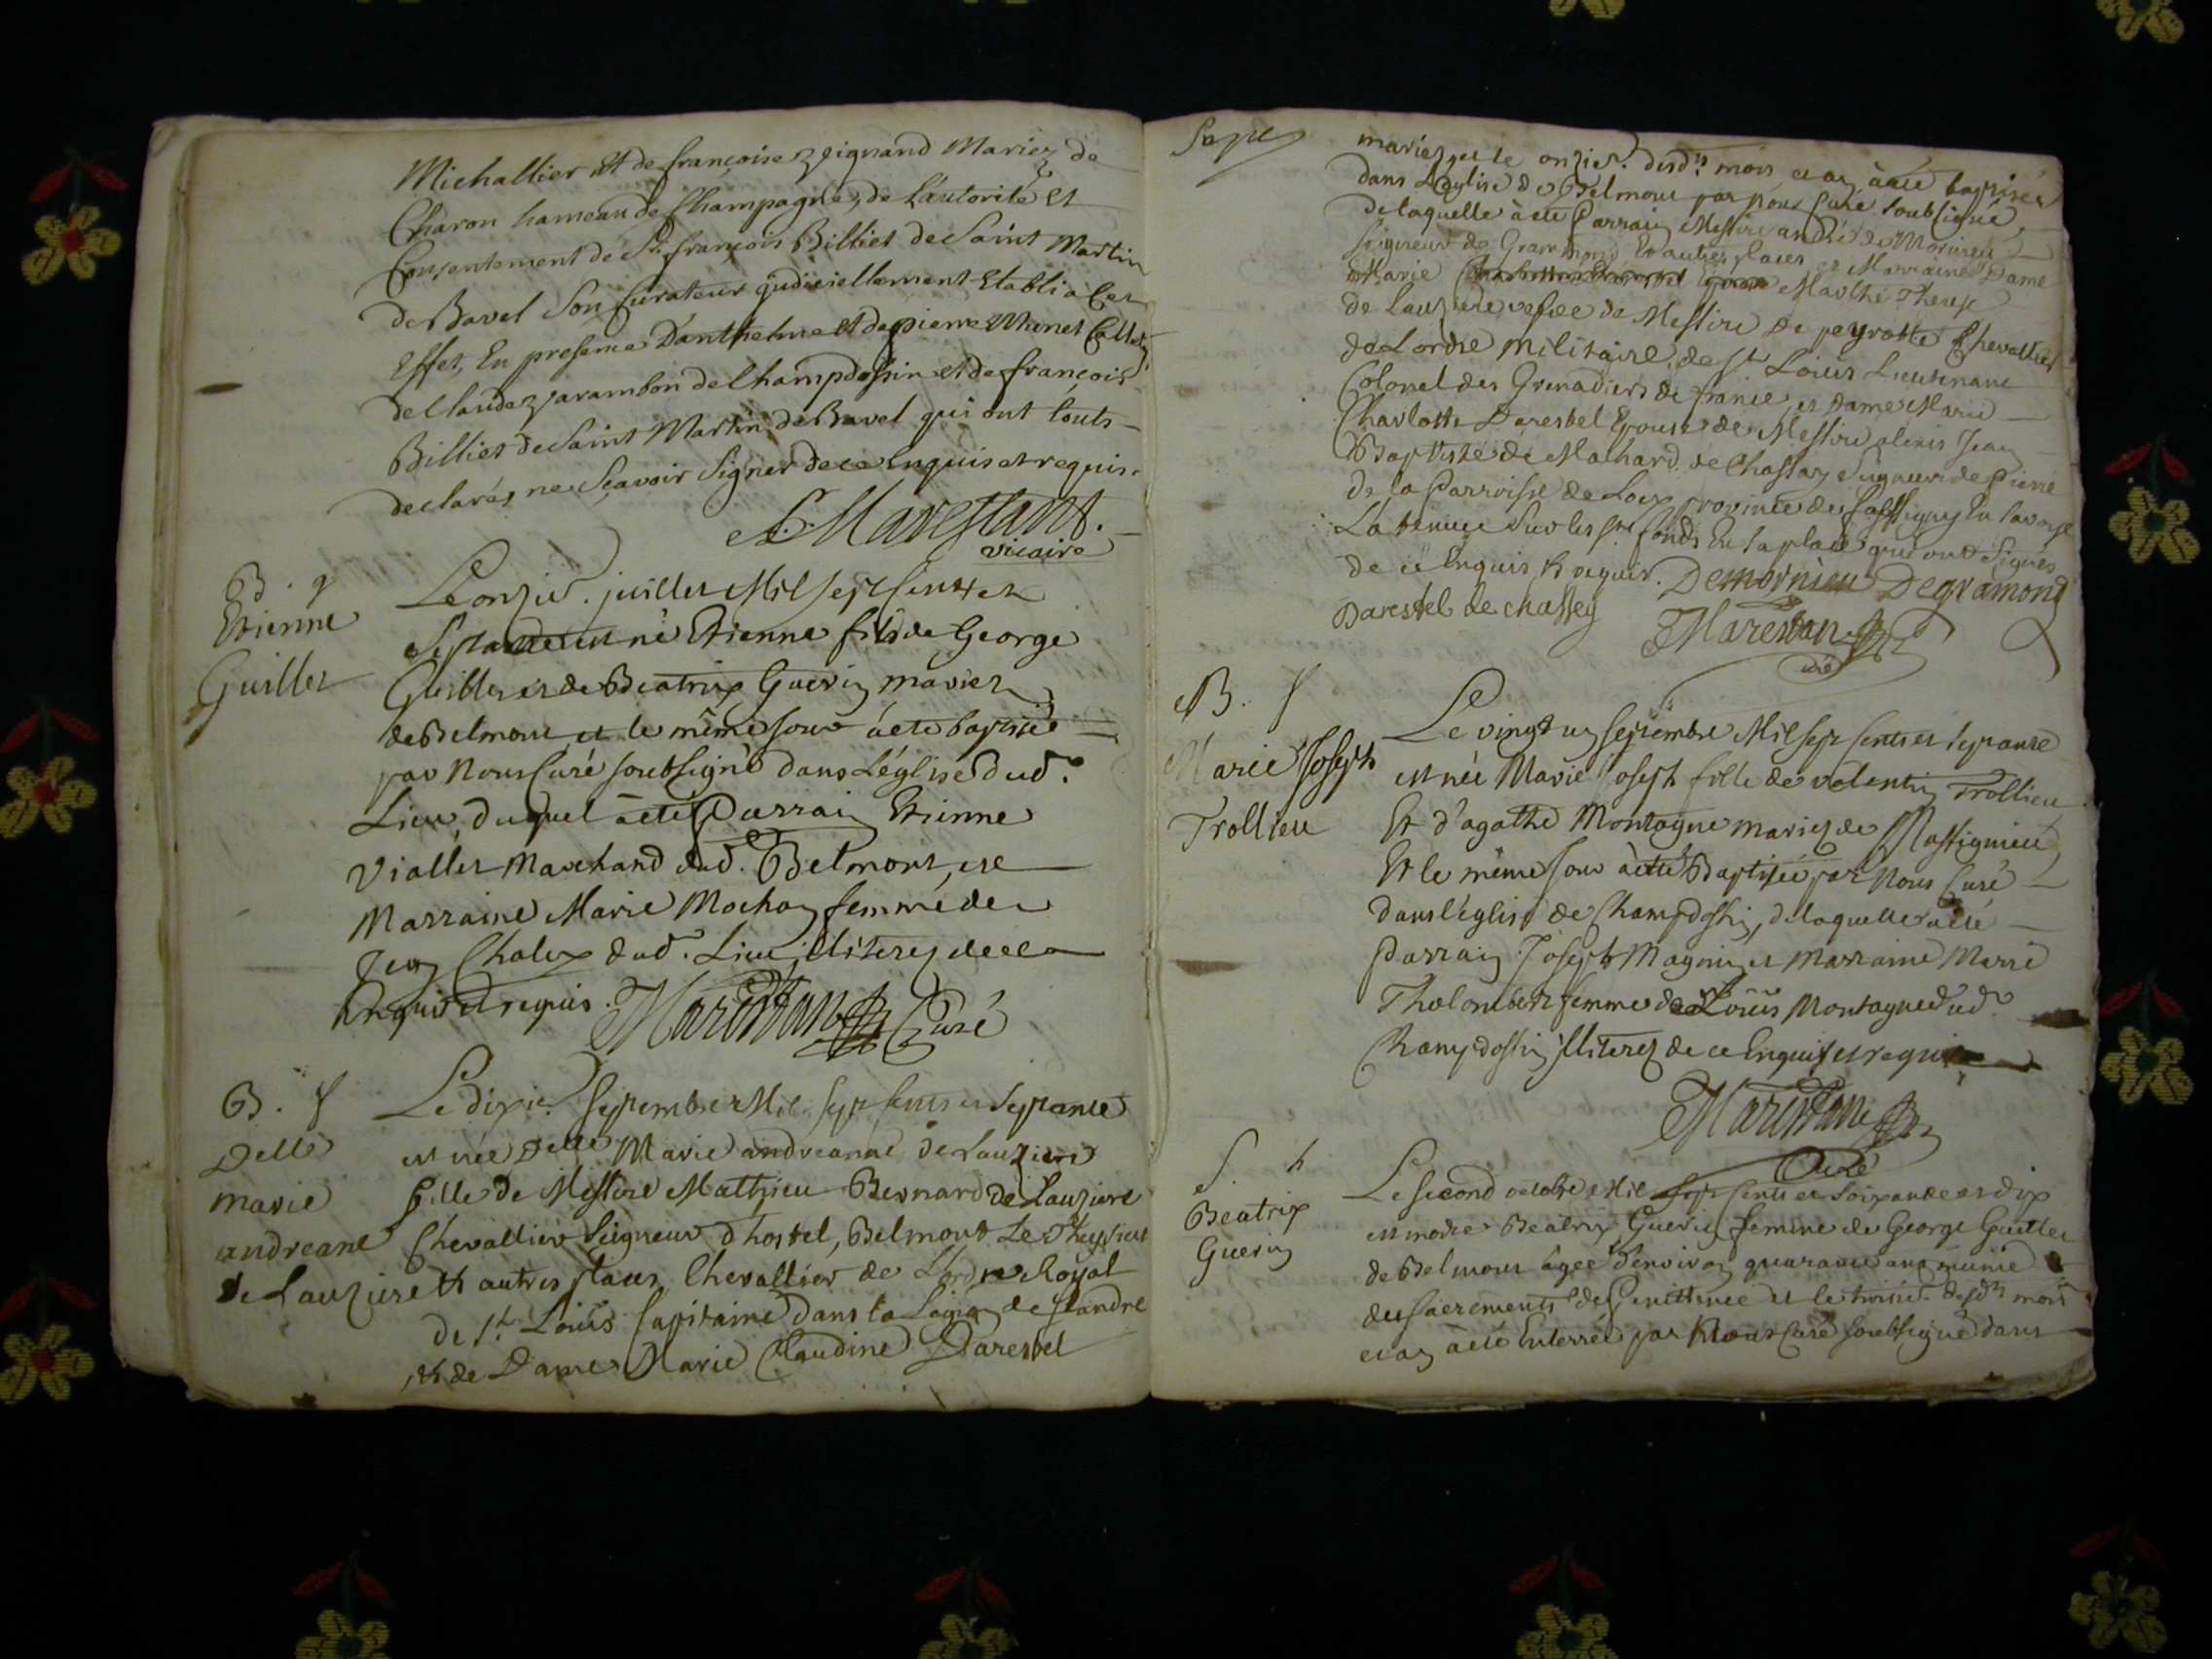 Michallier et de françoise Reignand Mariez de
Charon hameau de Champagne, de L'autorité et
Consentement de Sr. françois Billiet de Saint Martin
de Bavel Son Curateur judiciellement Etabli a Cet
Effet, En presence D'anthelme et de pierre Manet Collet,
de Claude Jarambon de Champdossin et de françois
Billiet de Saint Martin de Bavel qui ont touts
declarés ne Scavoir Signer de ce Enquis et requis.
Marestant.
vicaire
B. g
Etienne
Guillet
Le onzie. juillet Mil sept cents et
Septante est né Etienne fils de George
Guillet et de Beatrix Guerin mariez
de Belmont et le même jour à été baptisé
par Nous Curé soubsigné dans L'église dud.
Lieu, duquel à été Parrain Etienne
Viallet Marchand dud. Belmont, et
Marraine Marie Mochon femme de
Jean Chaley dud. Lieu illiterez de ce
Enquis et requis. Marestan Curé
B. f
Delle
marie
andreane
de Lauziere
Le dixie. septembre Mil sept cents et Septante
est née Delle Marie andreanne de Lauziere
fille de Messire Mathieu Bernard de Lauziere
Chevallier Seigneur d'hostel, Belmont Le Theysieu
et autres places, Chevallier de L'ordre Royal
de St. Loüis Capitaine dans la Legion de flandre
et de Dame Marie Claudine Darestel
Sept
mariez, et le onzie. desd. mois et an, à été baptisée
dans L'église de Belmont par Nous Curé soubsigné,
de laquelle à été Parrain Messire andré de Mornieu
Seigneur de Gramond Et autres places et Marraine Dame
Marie Marthe Therese
de Lauziere vefve de Messire de peyrotte Chevallier
de L'ordre militaire de St Loüis Lieutenant
Colonel des Grenadiers de france, et Dame Marie
Charlotte Darestel Epouse de Messire alexis Jean
Baptiste de Machard de Chassey Seigneur de Pierre
de la Parroisse de Loex province de fossigny En Savoye
La tenuee Sur les fonds En sa place qui ont Signés
de ce Enquis et requis. Demornieu Degramond
Darestel de chassey Marestan
curé
B. f
Marie Joseph
Trollieu
Le vingt un septembre Mil sept cents et septante
est née Marie Joseph fille de valentin Trollieu
Et d'agathe Montagne mariez de Massignieu
Et le même jour à été Baptisée par Nous Curé
dans L'église de Champdossin, de laquelle a été
Parrain Joseph Magnin et Marraine Marie
Tholombert femme de Loüis Montagne dud.
Champdossin illiterez de ce Enquis et requis
Marestan
Curé
S. h
Beatrix
Guerin
Le second octobre Mil sept cents et soixante et dix
est morte Beatrix Guerin femme de George Guillet
de Belmont agée d'environ quarante ans munie
des sacrements de Penittence et le troisie. desd. mois
et an a été Enterrée par Nous Curé soubsigné dans